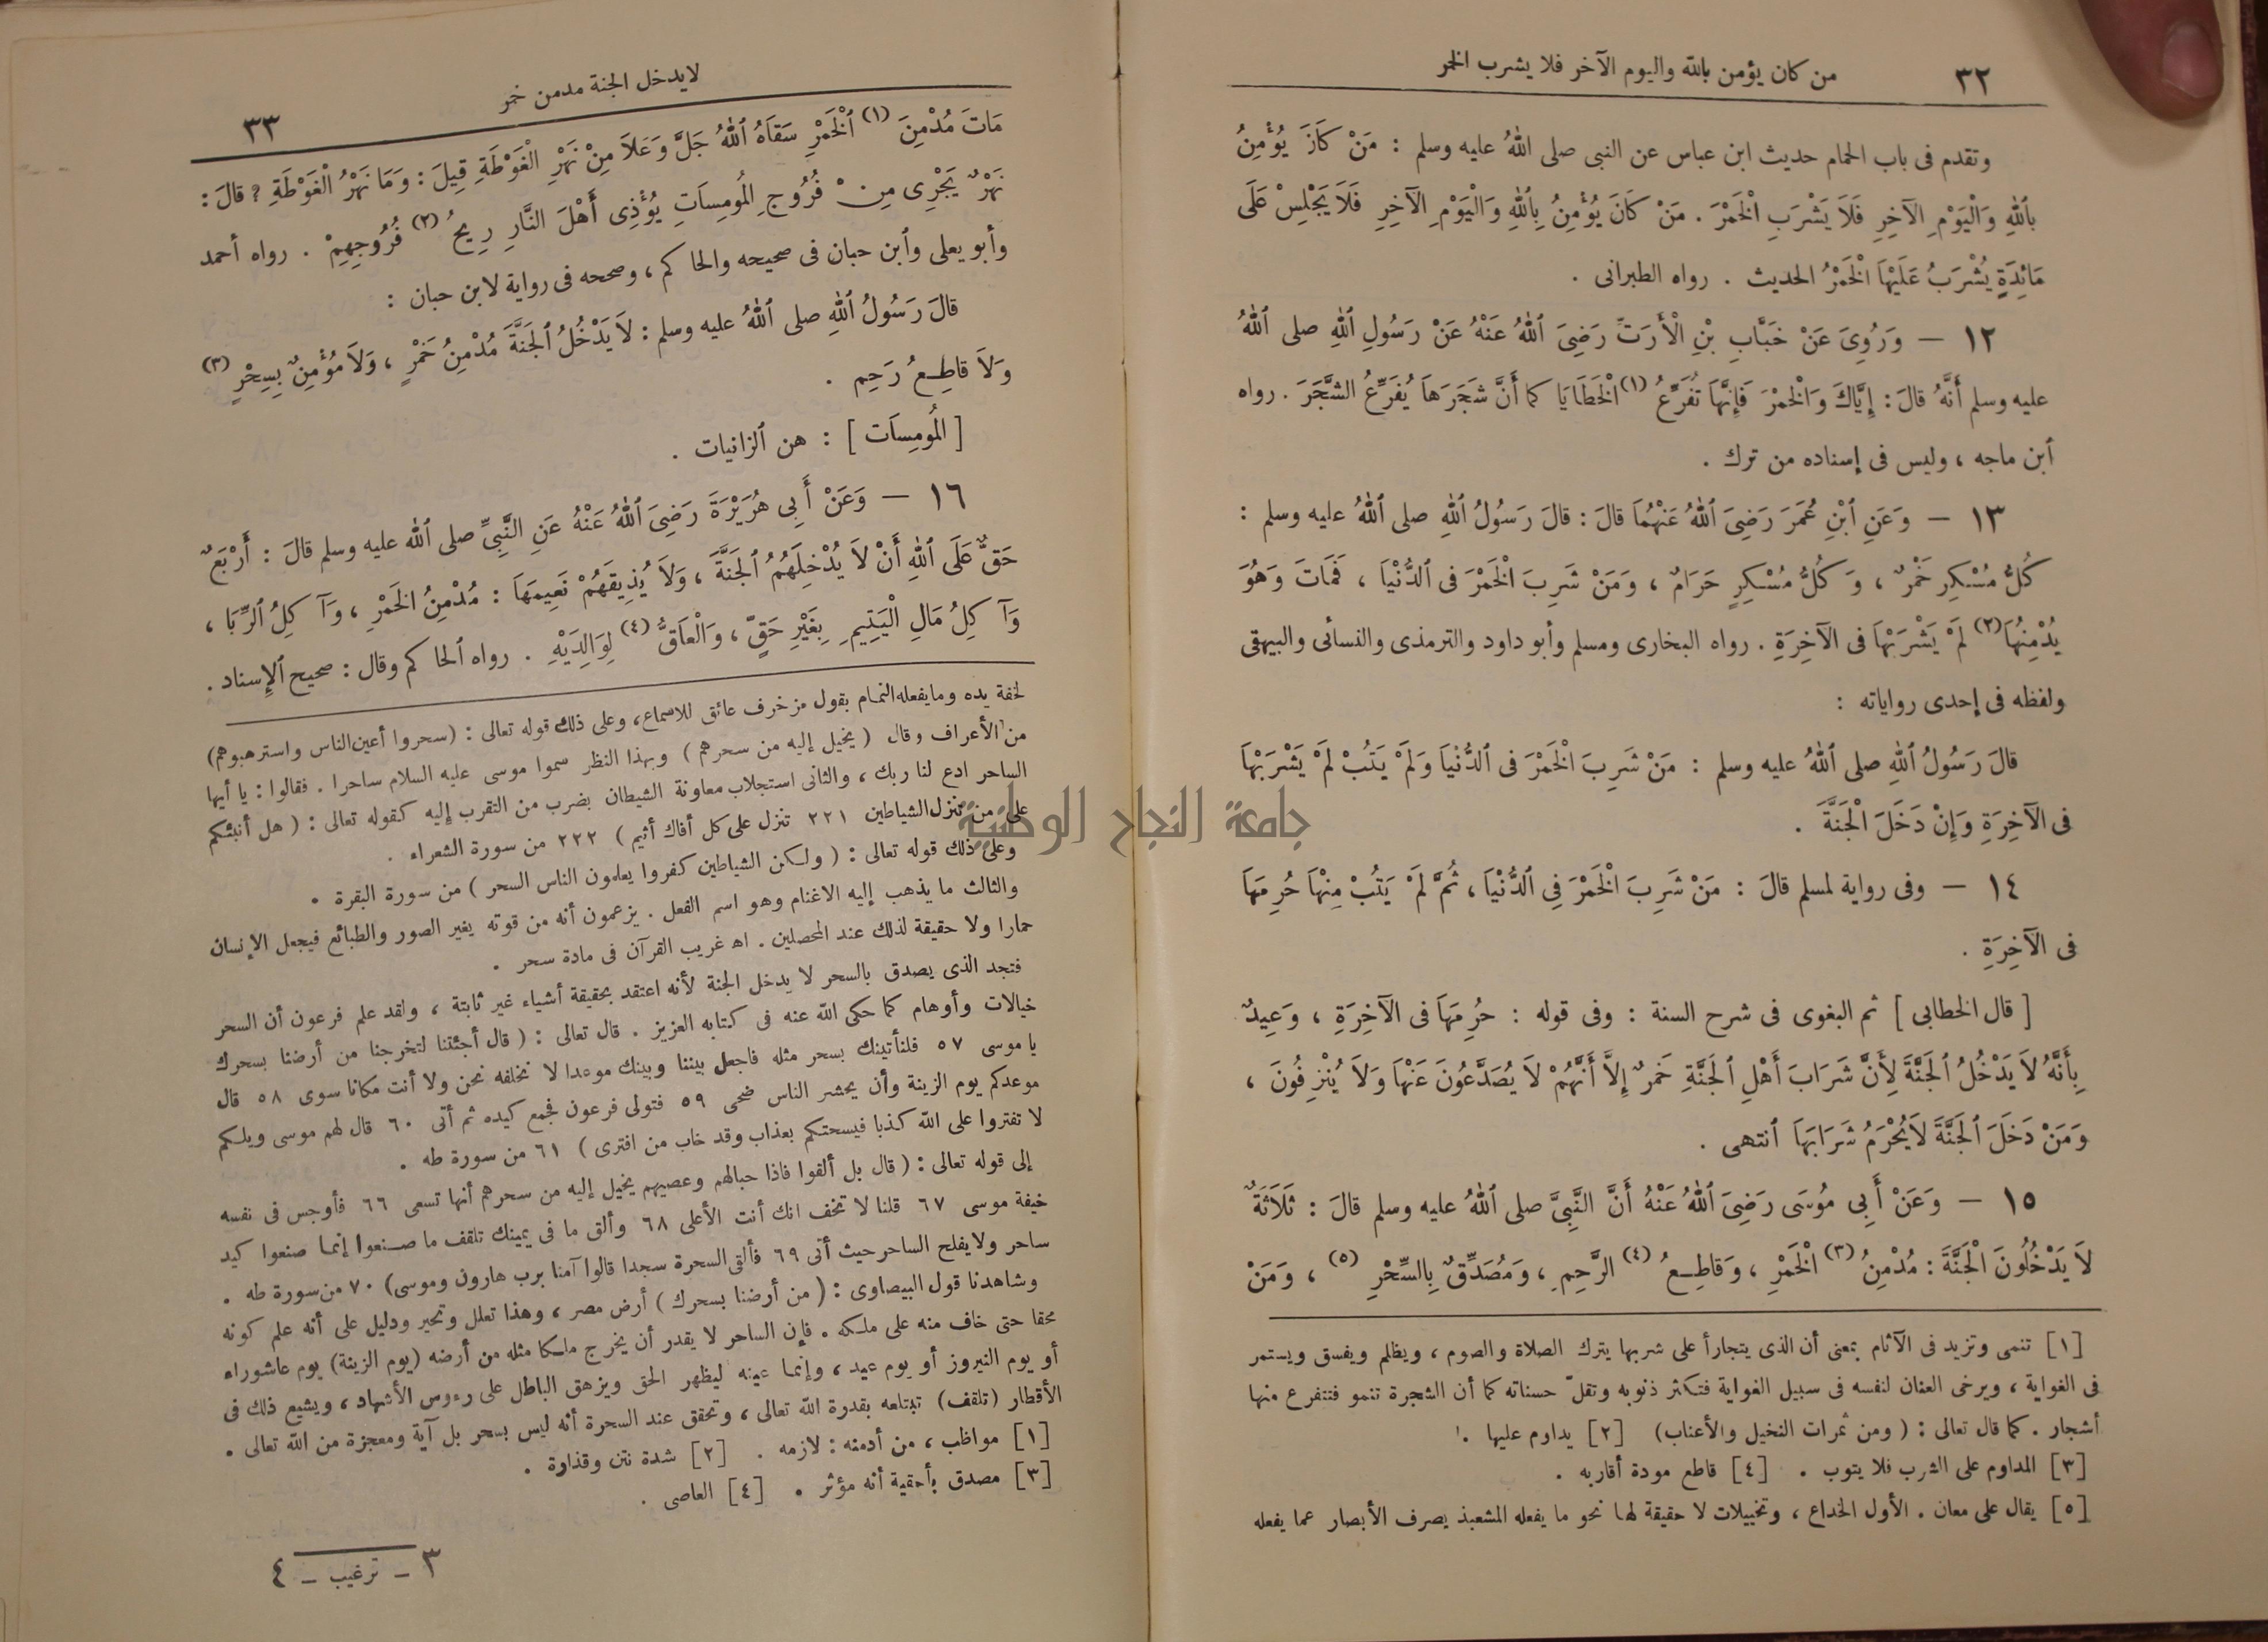 ٣٢
من كان يؤمن بالله واليوم الآخر فلا يشرب الخمر
وتقدم فى باب الحمام حديث ابن عباس عن النبى صلى اللهُ عليه وسلم : مَنْ كَانَ يُؤْمِنُ
بِاللهِ وَالْيَوْمِ الآخِرِ فَلاَ يَشْرَبِ الْخَمْرَ . مَنْ كَانَ يُؤْمِنُ بِاللهِ وَالْيَوْمِ الآخِرِ فَلاَ يَجْلِسْ عَلَى
مَائِدَةٍ يُشْرَبُ عَلَيْهَا الْخَمْرُ الحديث . رواه الطبرانى .
١٢ — وَرُوِىَ عَنْ خَبَّابِ بْنِ الْأَرَتِّ رَضِىَ اللهُ عَنْهُ عَنْ رَسُولِ اللهِ صلى اللهُ
عليه وسلم أَنَّهُ قالَ : إِيَّاكَ وَالْخَمْرَ فَإِنَّهَا تُفَرِّعُ (١) الْخَطَايَا كما أَنَّ شَجَرَهَا يُفَرِّعُ الشَّجَرَ . رواه
ابن ماجه ، وليس فى إسناده من ترك .
١٣ — وَعَنِ ابْنِ عُمَرَ رَضِىَ اللهُ عَنْهُمَا قالَ : قالَ رَسُولُ اللهِ صلى اللهُ عليه وسلم :
كُلُّ مُسْكِرٍ خَمْرٌ ، وَكُلُّ مُسْكِرٍ حَرَامٌ ، وَمَنْ شَرِبَ الْخَمْرَ فى الدُّنْيَا ، فَمَاتَ وَهُوَ
يُدْمِنُهَا (٢) لَمْ يَشْرَبْهَا فى الآخِرَةِ . رواه البخارى ومسلم وأبو داود والترمذى والنسائى والبيهقى
ولفظه فى إحدى رواياته :
قالَ رَسُولُ اللهِ صلى اللهُ عليه وسلم : مَنْ شَرِبَ الْخَمْرَ فى الدُّنْيَا وَلَمْ يَتُبْ لَمْ يَشْرَبْهَا
فى الآخِرَةِ وَإِنْ دَخَلَ الْجَنَّةَ .
١٤ — وفى رواية لمسلم قالَ : مَنْ شَرِبَ الْخَمْرَ فِى الدُّنْيَا ، ثُمَّ لَمْ يَتُبْ مِنْهَا حُرِمَهَا
فى الآخِرَةِ .
[ قال الخطابى ] ثم البغوى فى شرح السنة : وفى قوله : حُرِمَهَا فى الآخِرَةِ ، وَعِيدٌ
بِأَنَّهُ لاَ يَدْخُلُ الْجَنَّةَ لِأَنَّ شَرَابَ أَهْلِ الْجَنَّةِ خَمْرٌ إِلاَّ أَنَّهُمْ لاَ يُصَدَّعُونَ عَنْهَا وَلاَ يُنْزِفُونَ ،
وَمَنْ دَخَلَ الْجَنَّةَ لاَيُحْرَمُ شَرَابَهَا انتهى .
١٥ — وَعَنْ أَبِى مُوسَى رَضِىَ اللهُ عَنْهُ أَنَّ النَّبِىَّ صلى اللهُ عليه وسلم قالَ : ثَلَاثَةٌ
لاَ يَدْخُلُونَ الْجَنَّةَ : مُدْمِنُ (٣) الْخَمْرِ ، وَقاطِعُ (٤) الرَّحِمِ ، وَمُصَدِّقٌ بِالسِّحْرِ (٥) ، وَمَنْ
[١] تنمى وتزيد فى الآثام بمعنى أن الذى يتجارأ على شربها يترك الصلاة والصوم ، ويظلم ويفسق ويستمر
فى الغواية ، ويرخى العنان لنفسه فى سبيل الغواية فتكثر ذنوبه وتقلّ حسناته كما أن الشجرة تنمو فتتفرع منها
أشجار . كما قال تعالى : ( ومن ثمرات النخيل والأعناب) [٢] يداوم عليها .
[٣] المداوم على الشرب فلا يتوب . [٤] قاطع مودة أقاربه .
[٥] يقال على معان . الأول الخداع ، وتخييلات لا حقيقة لها نحو ما يفعله المشعبذ يصرف الأبصار عما يفعله
لايدخل الجنة مدمن خمر
٣٣
مَاتَ مُدْمِنَ (١) الْخَمْرِ سَقَاهُ اللهُ جَلَّ وَعَلاَ مِنْ نَهْرِ الْغَوْطَةِ قِيلَ : وَمَا نَهْرُ الْغَوْطَةِ ? قالَ :
نَهْرٌ يَجْرِى مِنْ فُرُوجِ الْمُومِسَاتِ يُؤْذِى أَهْلَ النَّارِ رِيحُ (٢) فُرُوجِهِمْ . رواه أحمد
وأبو يعلى وابن حبان فى صحيحه والحاكم ، وصححه فى رواية لابن حبان :
قالَ رَسُولُ اللهِ صلى اللهُ عليه وسلم : لاَ يَدْخُلُ الْجَنَّةَ مُدْمِنُ خَمْرٍ ، وَلاَ مُؤْمِنٌ بِسِحْرٍ (٣)
وَلاَ قاطِعُ رَحِمٍ .
[ الْمُومِسَات ] : هن الزانيات .
١٦ — وَعَنْ أَبِى هُرَيْرَةَ رَضِىَ اللهُ عَنْهُ عَنِ النَّبِىِّ صلى الله عليه وسلم قالَ : أَرْبَعٌ
حَقٌّ عَلَى اللهِ أَنْ لاَ يُدْخِلَهُمُ الْجَنَّةَ ، وَلاَ يُذِيقَهُمْ نَعِيمَهَا : مُدْمِنُ الخَمْرِ ، وَآكِلُ الرِّبَا ،
وَآكِلُ مَالِ الْيَتِيمِ بِغَيْرِ حَقٍّ ، وَالْعَاقُّ (٤) لِوَالِدَيْهِ . رواه الحاكم وقال : صحيح الإسناد .
لخفة يده ومايفعله النمام بقول مزخرف عائق للاسماع، وعلى ذلك قوله تعالى : (سحروا أعين الناس واسترهبوهم)
من الأعراف وقال ( يخيل إليه من سحرهم ) وبهذا النظر سموا موسى عليه السلام ساحرا . فقالوا : يا أيها
الساحر ادع لنا ربك ، والثانى استجلاب معاونة الشيطان بضرب من التقرب إليه كقوله تعالى : ( هل أنبئكم
على من تنزل الشياطين ٢٢١ تنزل على كل أفاك أثيم ) ٢٢٢ من سورة الشعراء .
وعلى ذلك قوله تعالى : ( ولكن الشياطين كفروا يعلمون الناس السحر ) من سورة البقرة .
والثالث ما يذهب إليه الاغنام وهو اسم الفعل . يزعمون أنه من قوته يغير الصور والطبائع فيجعل الإنسان
حمارا ولا حقيقة لذلك عند المحصلين . اه غريب القرآن فى مادة سحر .
فتجد الذى يصدق بالسحر لا يدخل الجنة لأنه اعتقد بحقيقة أشياء غير ثابتة ، ولقد علم فرعون أن السحر
خيالات وأوهام كما حكى الله عنه فى كتابه العزيز . قال تعالى : ( قال أجئتنا لتخرجنا من أرضنا بسحرك
يا موسى ٥٧ فلنأتينك بسحر مثله فاجعل بيننا وبينك موعدا لا نخلفه نحن ولا أنت مكانا سوى ٥٨ قال
موعدكم يوم الزينة وأن يحشر الناس ضحى ٥٩ فتولى فرعون فجمع كيده ثم أتى ٦٠ قال لهم موسى ويلكم
لا تفتروا على الله كذبا فيسحتكم بعذاب وقد خاب من افترى ) ٦١ من سورة طه .
إلى قوله تعالى : ( قال بل ألقوا فاذا حبالهم وعصيهم يخيل إليه من سحرهم أنها تسعى ٦٦ فأوجس فى نفسه
خيفة موسى ٦٧ قلنا لا تخف انك أنت الأعلى ٦٨ وألق ما فى يمينك تلقف ما صنعوا إنما صنعوا كيد
ساحر ولايفلح الساحر حيث أتى ٦٩ فألقى السحرة سجدا قالوا آمنا برب هارون وموسى) ٧٠ من سورة طه .
وشاهدنا قول البيضاوى : ( من أرضنا بسحرك ) أرض مصر ، وهذا تعلل وتحير ودليل على أنه علم كونه
محقا حتى خاف منه على ملكه . فإن الساحر لا يقدر أن يخرج ملكا مثله من أرضه (يوم الزينة) يوم عاشوراء
أو يوم النيروز أو يوم عيد ، وإنما عينه ليظهر الحق ويزهق الباطل على رءوس الأشهاد ، ويشيع ذلك فى
الأقطار (تلقف) تبتلعه بقدرة الله تعالى ، وتحقق عند السحرة أنه ليس بسحر بل آية ومعجزة من الله تعالى .
[١] مواظب ، من أدمنه : لازمه . [٢] شدة نتن وقذارة .
[٣] مصدق بأحقية أنه مؤثر . [٤] العاصى .
٣ — ترغيب — ٤
جامعة النجاح الوطنية